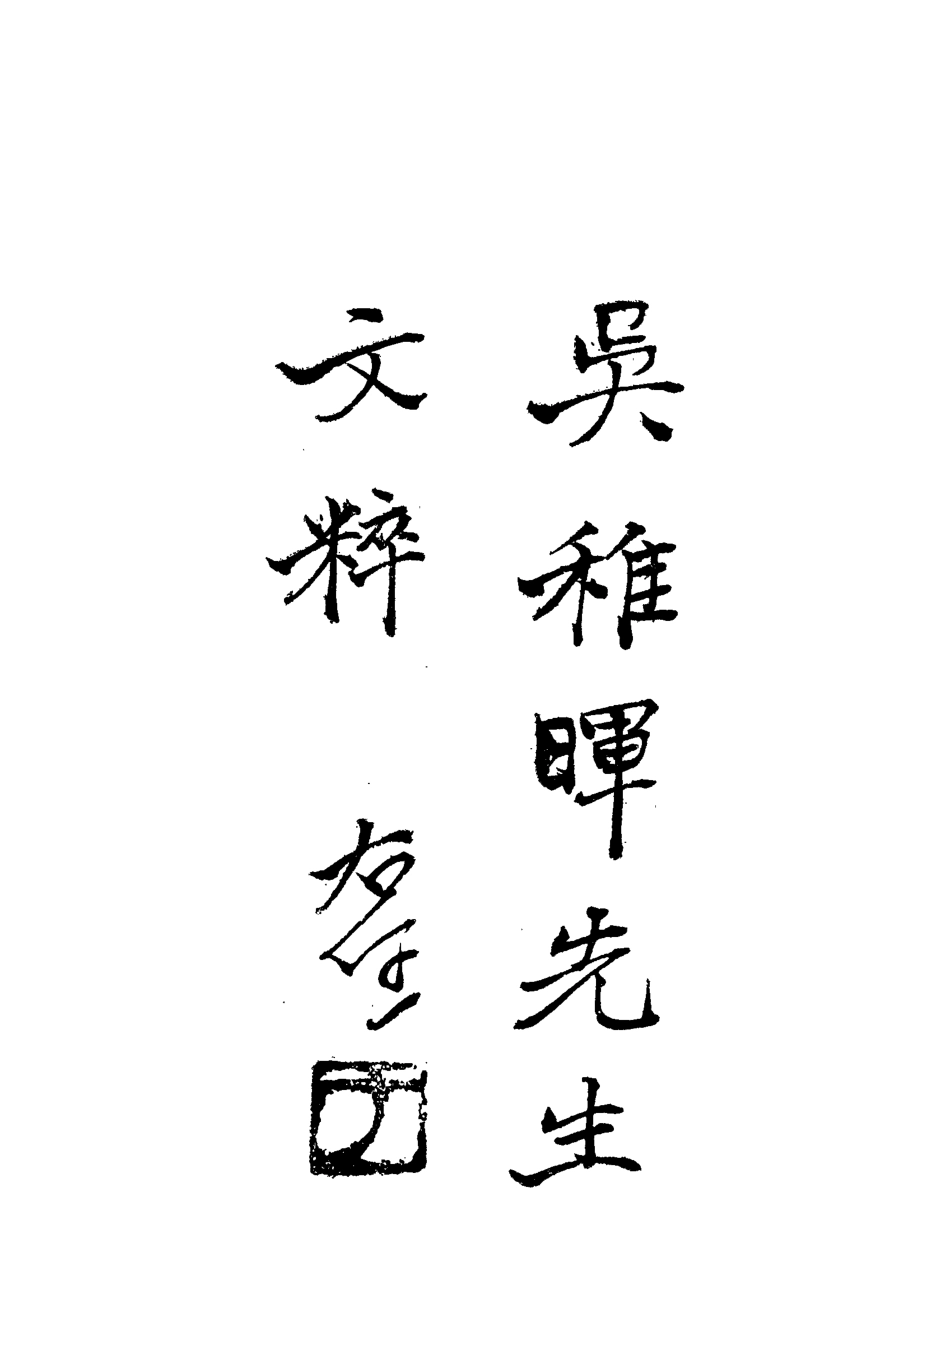 吳稚暉先生
文粹
右任